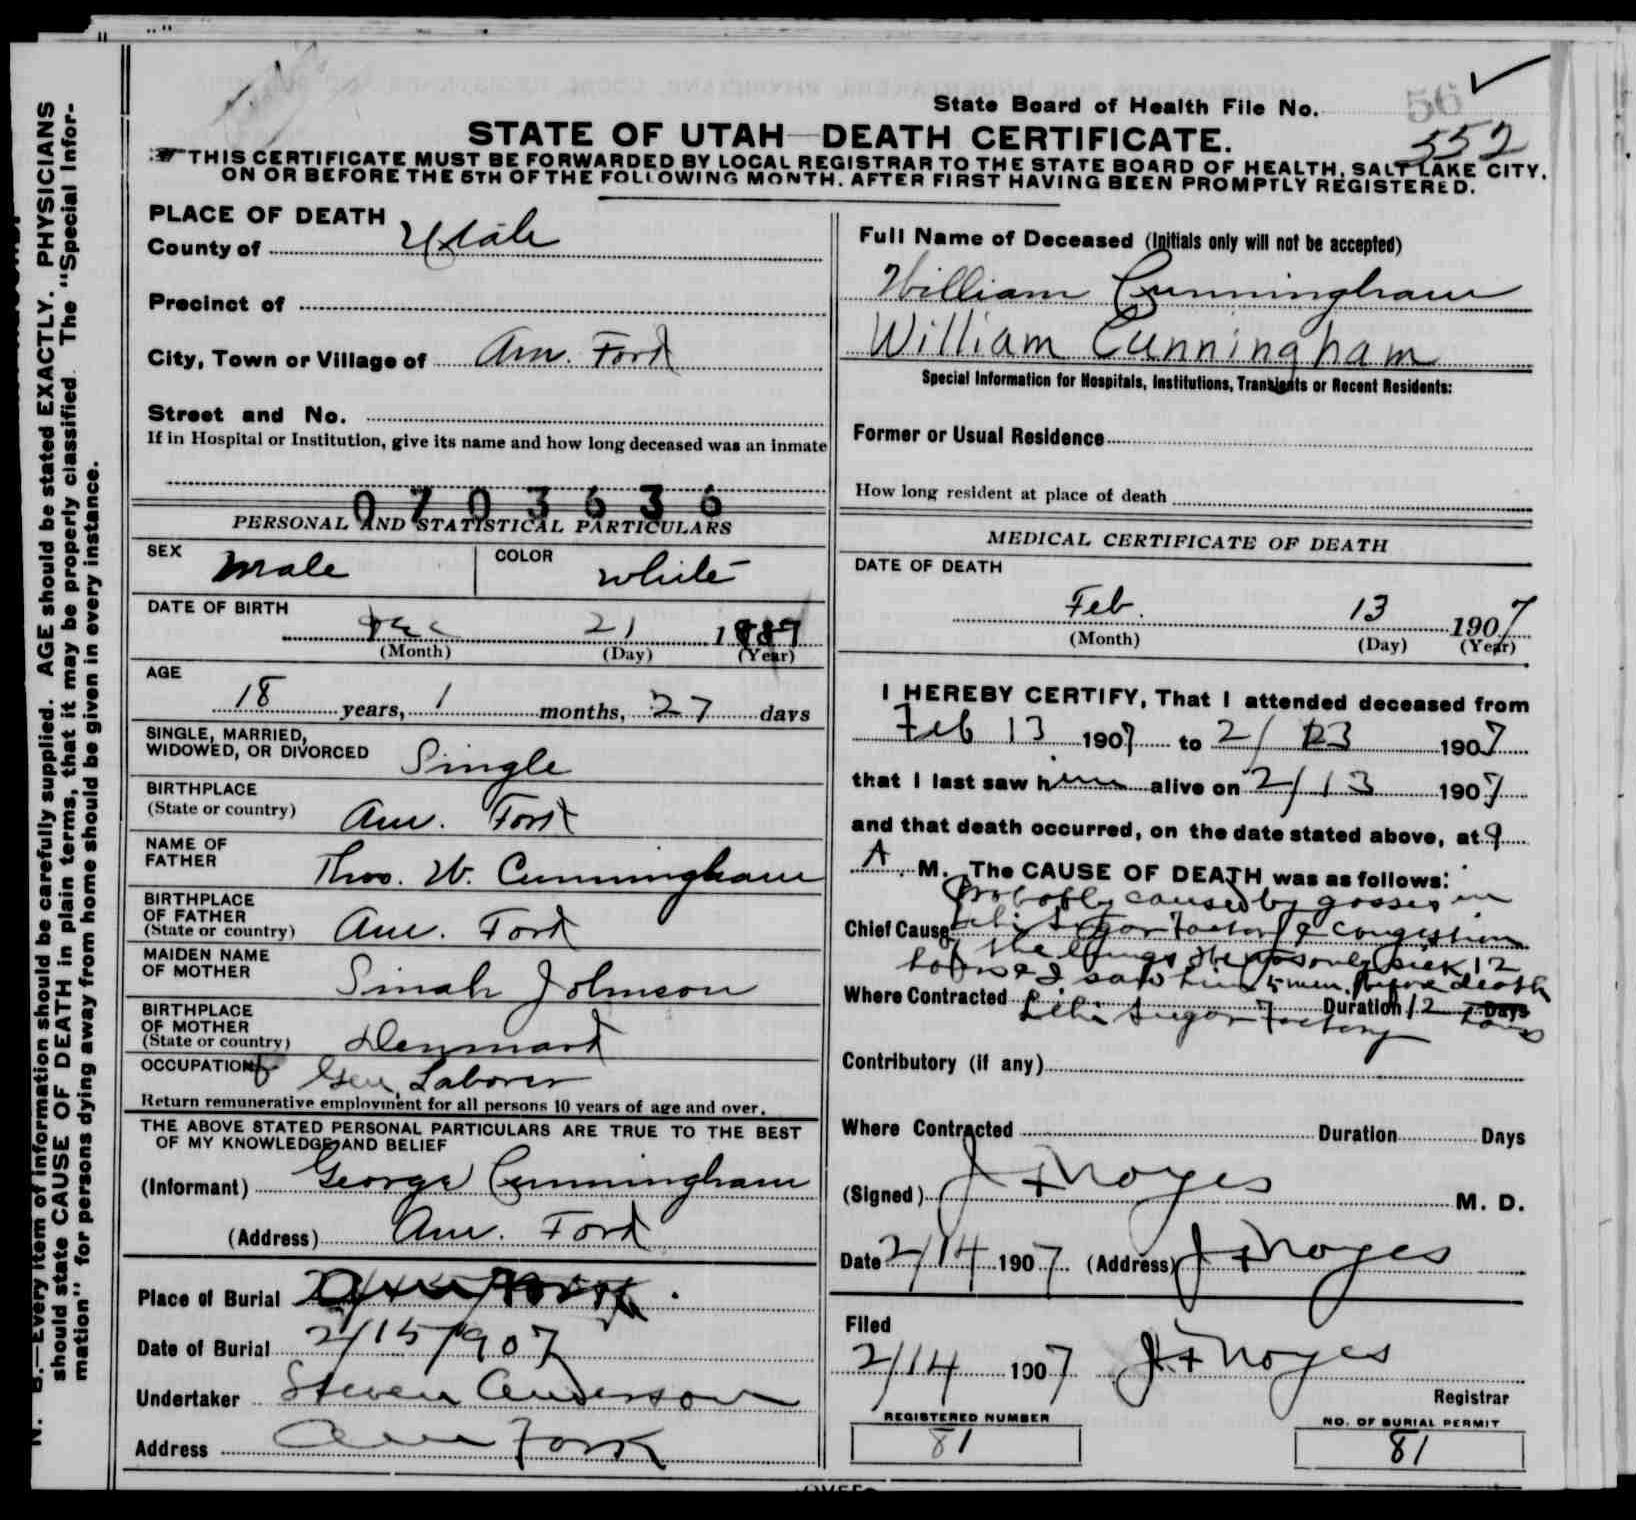 State Board of Health File No. 56
552
STATE OF UTAH—DEATH CERTIFICATE.
THIS CERTIFICATE MUST BE FORWARDED BY LOCAL REGISTRAR TO THE STATE BOARD OF HEALTH, SALT LAKE CITY,
ON OR BEFORE THE 5TH OF THE FOLLOWING MONTH, AFTER FIRST HAVING BEEN PROMPTLY REGISTERED.
N. B.—Every item of information should be carefully supplied. AGE should be stated EXACTLY. PHYSICIANS
should state CAUSE OF DEATH in plain terms, that it may be properly classified. The "Special Infor-
mation" for persons dying away from home should be given in every instance.
PLACE OF DEATH
County of Utah
Precinct of
City, Town or Village of Am. Fork
Street and No.
If in Hospital or Institution, give its name and how long deceased was an inmate
0703636
PERSONAL AND STATISTICAL PARTICULARS
SEX Male COLOR white
DATE OF BIRTH
Dec 21 1887
(Month) (Day) (Year)
AGE
18 years, 1 months, 27 days
SINGLE, MARRIED,
WIDOWED, OR DIVORCED Single
BIRTHPLACE
(State or country) Am. Fork
NAME OF
FATHER Thos. W. Cunningham
BIRTHPLACE
OF FATHER
(State or country) Am. Fork
MAIDEN NAME
OF MOTHER Sinah Johnson
BIRTHPLACE
OF MOTHER
(State or country) Denmark
OCCUPATION Gen Laborer
Return remunerative employment for all persons 10 years of age and over.
THE ABOVE STATED PERSONAL PARTICULARS ARE TRUE TO THE BEST
OF MY KNOWLEDGE AND BELIEF
(Informant) George Cunningham
(Address) Am. Fork
Place of Burial Am Fork
Date of Burial 2/15/907
Undertaker Steven Anderson
Address Am Fork
Full Name of Deceased (Initials only will not be accepted)
William Cunningham
William Cunningham
Special Information for Hospitals, Institutions, Transients or Recent Residents:
Former or Usual Residence
How long resident at place of death
MEDICAL CERTIFICATE OF DEATH
DATE OF DEATH
Feb. 13 1907
(Month) (Day) (Year)
I HEREBY CERTIFY, That I attended deceased from
Feb 13 1907 to 2/13 1907
that I last saw him alive on 2/13 1907
and that death occurred, on the date stated above, at 9
A M. The CAUSE OF DEATH was as follows:
Probably caused by gasses in
Chief Cause Lehi Sugar Factory & congestion
of the lungs He was only sick 12
hours I saw him 5 min. before death
Where Contracted Lehi Sugar Factory Duration 12 Days hours
Contributory (if any)
Where Contracted Duration Days
(Signed) J F Noyes M. D.
Date 2/14 1907 (Address) J F Noyes
Filed
2/14 1907 J F Noyes
Registrar
REGISTERED NUMBER
81
NO. OF BURIAL PERMIT
81